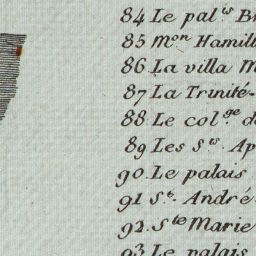 84 Le pal.ts B
85 M.on Hamill
86 La villa M
87 La Trinité-
88 Le col.ge d
89 Les S.ts Ap
90 Le palais
91 S.t André
92 S.te Marie
93 Le palais